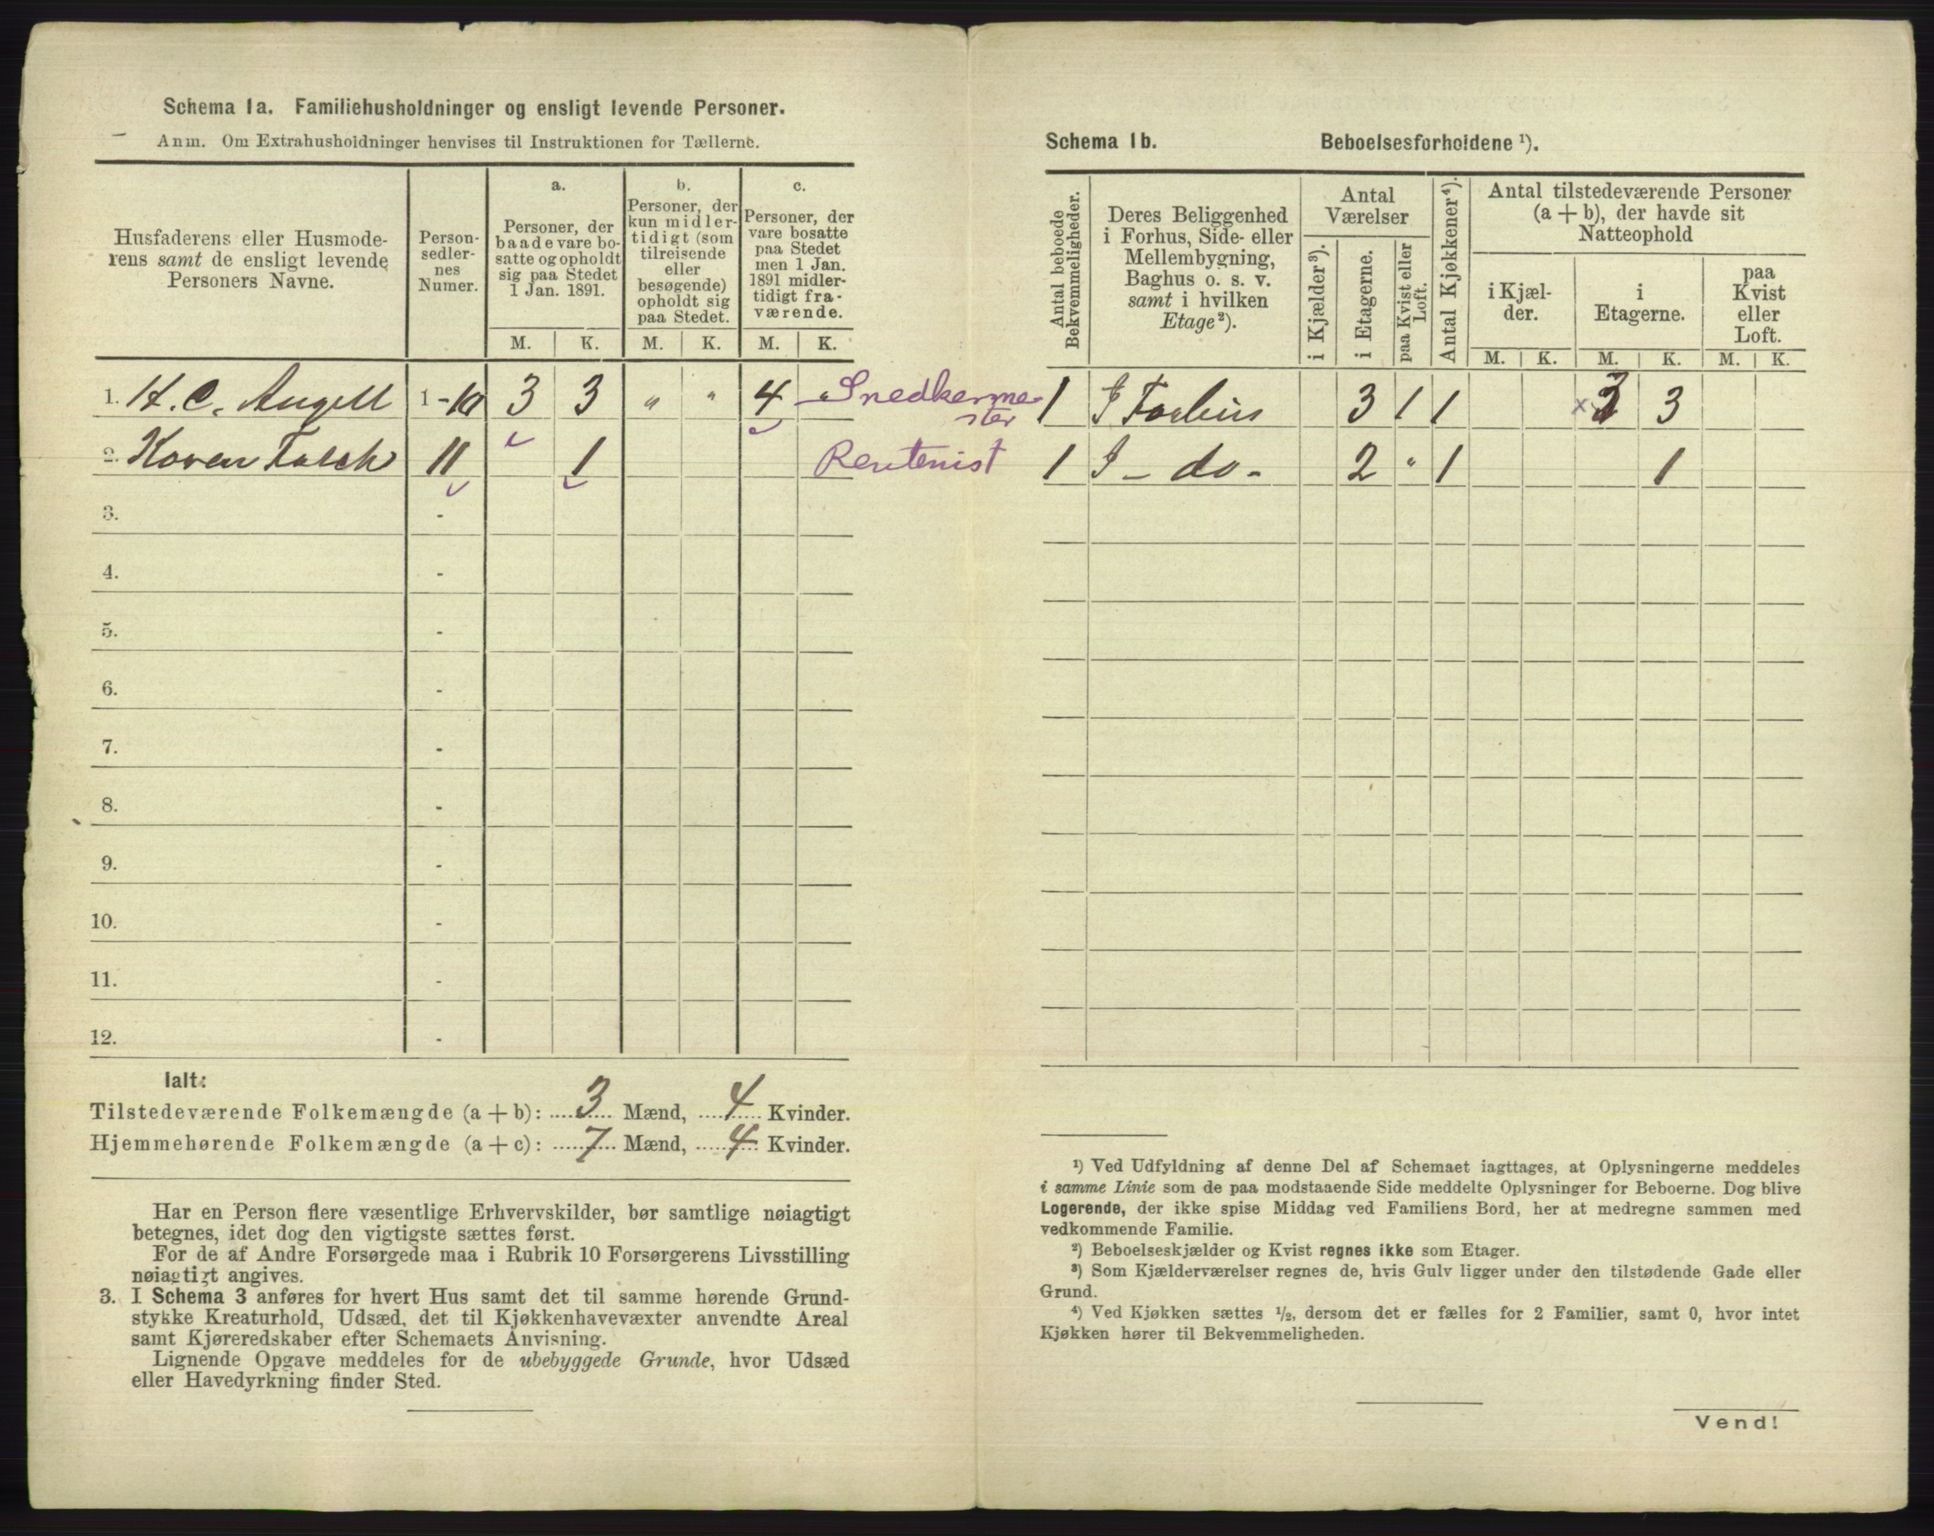 Schema 1a. Familiehusholdninger og ensligt levende Personer.
Anm. Om Extrahusholdninger henvises til Instruktionen for Tællerne.
Husfaderens eller Husmode-
rens samt de ensligt levende
Personers Navne.
Person-
sedler-
nes
Numer.
a.
Personer, der
baade vare bo-
satte og opholdt
sig paa Stedet
1 Jan. 1891.
b.
Personer, der
kun midler-
tidigt (som
tilreisende
eller
besøgende)
opholdt sig
paa Stedet.
c.
Personer, der
vare bosatte
paa Stedet
men 1 Jan.
1891 midler-
tidigt fra-
værende.
M. K. M. K. M. K.
1. H. C. Angell 1-10 3 3 " " 4 " Snedkerme
ster
2. Karen Falch 11 1 Rentenist
3. -
4. -
5. -
6. -
7. -
8. -
9. -
10. -
11. -
12. -
Ialt:
Tilstedeværende Folkemængde (a + b): 3 Mænd, 4 Kvinder.
Hjemmehørende Folkemængde (a + c): 7 Mænd, 4 Kvinder.
Har en Person flere væsentlige Erhvervskilder, bør samtlige nøiagtigt
betegnes, idet dog den vigtigste sættes først.
For de af Andre Forsørgede maa i Rubrik 10 Forsørgerens Livsstilling
nøiagtigt angives.
3. I Schema 3 anføres for hvert Hus samt det til samme hørende Grund-
stykke Kreaturhold, Udsæd, det til Kjøkkenhavevæxter anvendte Areal
samt Kjøreredskaber efter Schemaets Anvisning.
Lignende Opgave meddeles for de ubebyggede Grunde, hvor Udsæd
eller Havedyrkning finder Sted.
Schema 1b. Beboelsesforholdene ¹).
Antal beboede
Bekvemmeligheder.
Deres Beliggenhed
i Forhus, Side- eller
Mellembygning,
Baghus o. s. v.
samt i hvilken
Etage ²).
Antal
Værelser
i Kjælder ³).
i Etagerne.
paa Kvist eller
Loft.
Antal Kjøkkener ⁴).
Antal tilstedeværende Personer
(a + b), der havde sit
Natteophold
i Kjæl-
der.
i
Etagerne.
paa
Kvist
eller
Loft.
M. K. M. K. M. K.
1 I Forhus 3 1 1 × 3 3
1 I - do - 2 " 1 1
¹) Ved Udfyldning af denne Del af Schemaet iagttages, at Oplysningerne meddeles
i samme Linie som de paa modstaaende Side meddelte Oplysninger for Beboerne. Dog blive
Logerende, der ikke spise Middag ved Familiens Bord, her at medregne sammen med
vedkommende Familie.
²) Beboelseskjælder og Kvist regnes ikke som Etager.
³) Som Kjælderværelser regnes de, hvis Gulv ligger under den tilstødende Gade eller
Grund.
⁴) Ved Kjøkken sættes ½, dersom det er fælles for 2 Familier, samt 0, hvor intet
Kjøkken hører til Bekvemmeligheden.
Vend!